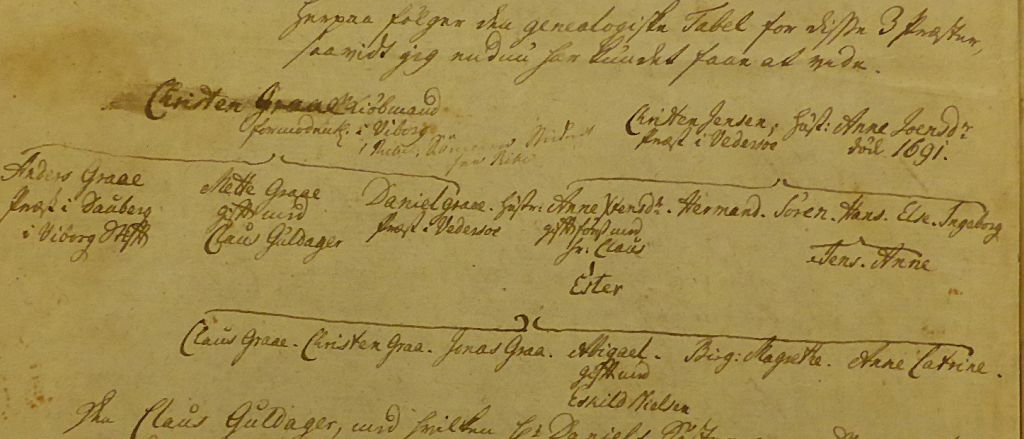 Herpaa følger den genealogiske Tabel for disse 3 Præster,
saavidt jeg endnu har kundet faae at vide.
Christen Graae Kiøbmand
formodentl: i Viborg
Christen Jensen, Hustr: Anne Joensdr
Præst i Vedersøe død 1691.
Anders Graae
Præst i Dauberg
i Viborg Stift
Mette Graae
gift med
Claus Guldager
Daniel Graae. Hustr: Anne Xstensdr. Hermand. Søren. Hans. Else. Ingeborg
Præst i Vedersøe
gift først med
Hr. Claus
Ester
Jens. Anne
Claus Graae. Christen Graa. Jonas Graa. Abigael. Birg: Magrethe. Anne Catrine.
gift med
Eskild Nielsen
Den Claus Guldager, med hvilken Hr Daniels Søster